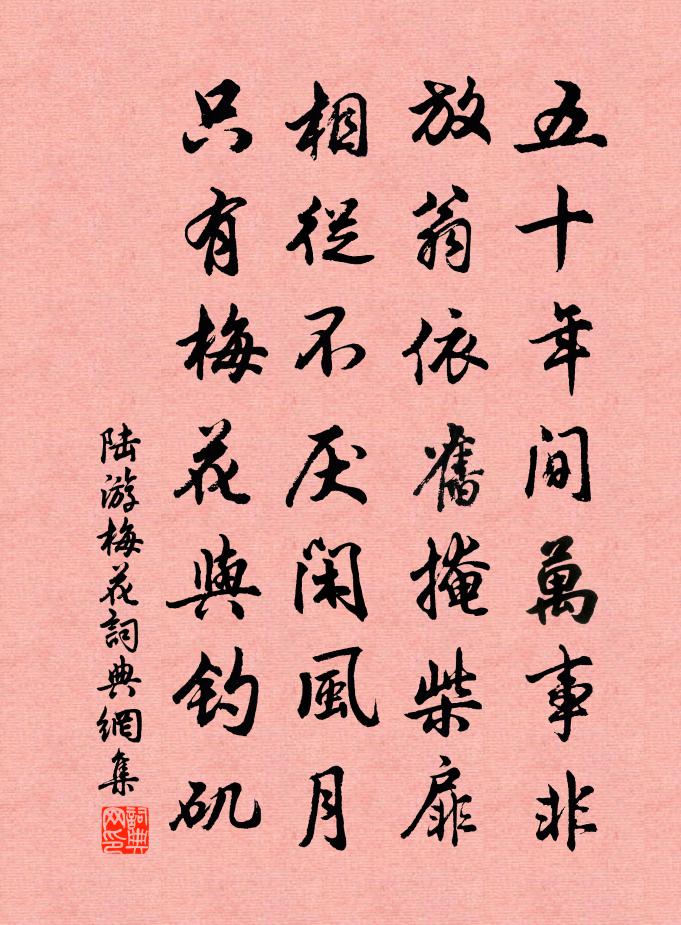 五十年間萬事非
放翁依舊掩柴扉
相從不厌閑風月
只有梅花與钓矶
陆游梅花詞典網集
詞典网印